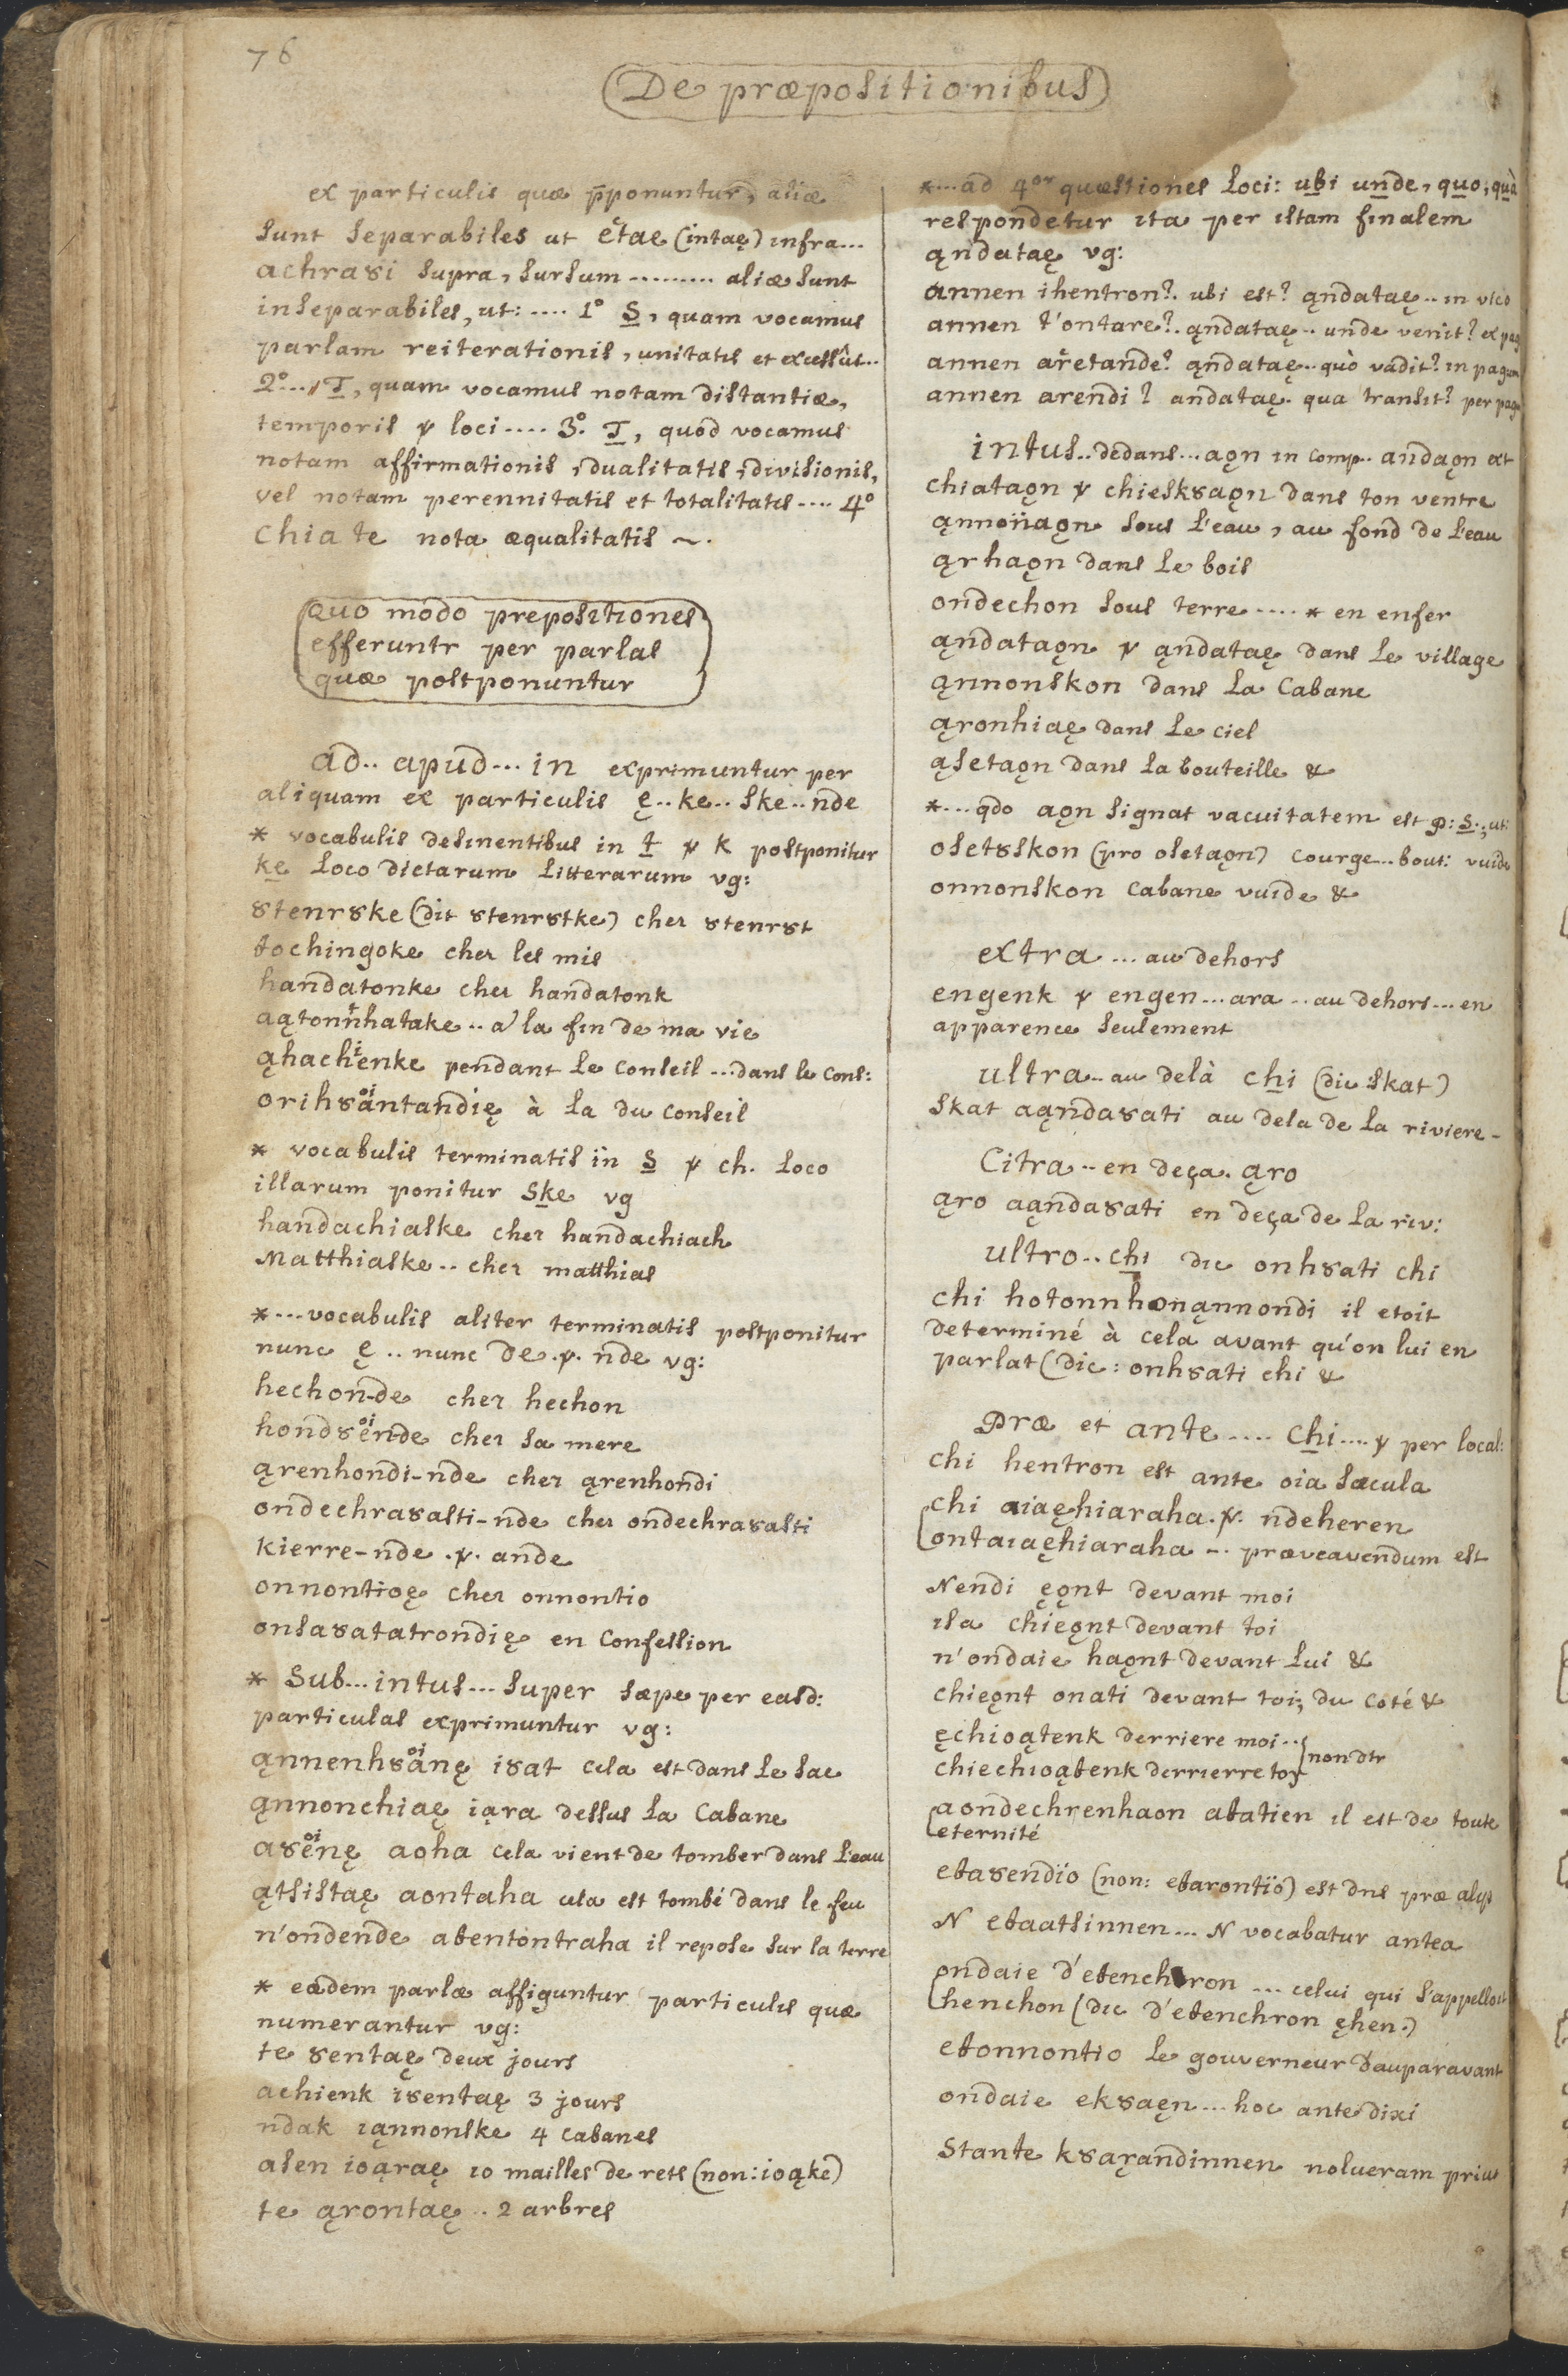 76
De præpositionibus
ex particulis quæ p̄ponuntur, aliæ
sunt separabiles ut etae (intaę) infra...
achra8i supra, sursum ......... aliæ sunt
inseparabiles, ut: .... 1° S, quam vocamus
parlam reiterationis, unitatis et excessûs..
2°... T, quam vocamus notam distantiæ,
temporis & loci .... 3° T, quod vocamus
notam affirmationis, dualitatis, divisionis,
vel notam perennitatis et totalitatis .... 4°
chia te nota æqualitatis ~.
Quo modo prepositiones
efferuntr per parlas
quæ postponuntur
ad.. apud... in exprimuntur per
aliquam ex particulis ę.. ke.. ske.. nde
* vocabulis desinentibus in t & k postponitur
ke loco dictarum litterarum vg:
8tenr8ke (dit 8tenr8tke) chez 8tenr8t
tochingoke chez les mis
handatonke chez handatonk
aątonnhatake.. a la fin de ma vie
ąhachienke pendant le conseil ... dans le cons:
orih8äntandię à la du conseil
* vocabulis terminatis in S & ch. loco
illarum ponitur ske vg
handachiaske chez handachiach
Matthiaske.. chez matthias
* ... vocabulis aliter terminatis postponitur
nunc ę .. nunc de .&. nde vg:
hechon-de chez hechon
hond8en-de chez sa mere
ąrenhondi-nde chez ąrenhondi
ondechra8asti-nde chez ondechra8asti
kierre-nde .&. ande
onnontioę chez onnontio
onsa8atatrondię en confession
* Sub... intus... super sæpe per easd:
particulas exprimuntur vg:
ąnnenh8anę i8at cela est dans le sac
ąnnonchiaę iąra dessus la cabane
a8enę aoha cela vient de tomber dans l'eau
ątsistaę aontaha cela est tombé dans le feu
n'ondende atentontraha il repose sur la terre
* eædem parlæ affiguntur particulis quæ
numerantur vg:
te 8entaę deux jours
achienk i8entaę 3 jours
ndak iąnnonske 4 cabanes
asen ioąraę 10 mailles de rets (non: ioąke)
te ąrontaę .. 2 arbres
*... ad 4or quæstiones loci: ubi unde, quo, quà
respondetur ita per istam finalem
ąndataę vg:
annen ihentron?. ubi est? ąndataę .. in vico
annen t'ontare?. ąndataę .. unde venit? ex pag
annen aretande? ąndataę .. quò vadit? in pagum
annen arendi? andataę. qua transit? per pag
intus.. dedans... aǫn in comp.. andaǫn at
chiataǫn & chiesk8aǫn dans ton ventre
ąnnonaǫn sous l'eau, au fond de l'eau
ąrhaǫn dans le bois
ondechon sous terre .... * en enfer
ąndataǫn & ąndataę dans le village
ąnnonskon dans la cabane
ąronhiaę dans le ciel
ąsetaǫn dans la bouteille &
*... qdo aǫn signat vacuitatem est p: s., ut:
osets8kon (pro osetaǫn) courge.. bout: vuide
onnonskon cabane vuide &
extra ... au dehors
engenk & engen... ara .. au dehors... en
apparence seulement
ultra.. au delà chi (dic skat)
skat aąnda8ati au dela de la riviere -
Citra .. en deça. ąro
ąro aąnda8ati en deça de la riv:
ultro.. chi dic onh8ati chi
chi hotonnhonąnnondi il etoit
determiné à cela avant qu'on lui en
parlat (dic: onh8ati chi &
Præ et ante .... chi .... & per local:
chi hentron est ante oia sæcula
chi aiaęhiaraha .&. ndeheren
ontaiaęhiaraha -. præveavendum est
Nendi ęǫnt devant moi
isa chieǫnt devant toi
n'ondaie haǫnt devant lui &
chieǫnt onati devant toi, du coté &
ęchioątenk derriere moi..
chiechioątenk derrierre toy } non dtr
aondechrenhaon atatien il est de toute
eternité
eta8endïo (non: etarontïo) est dns præ alys
N etaatsinnen... N vocabatur antea
ondaie d'etenchron ... celui qui s'appelloit
henchon (dic d'etenchron ęhen.)
etonnontio le gouverneur d'auparavant
ondaie ek8aęn... hoc ante dixi
Stante k8aąrandinnen nolueram prius